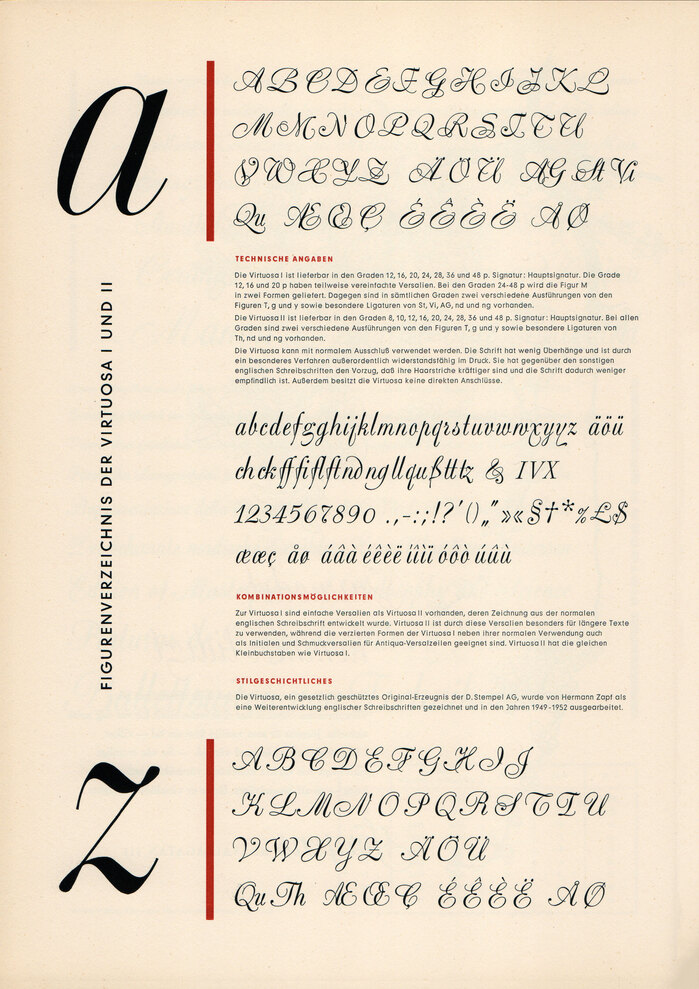 a
ABCDEFGHIJKL
MMNOPQRSTTU
VWXYZ ÄÖÜ AG St Vi
Qu ÆŒÇ ÉÊÈË ÅØ
TECHNISCHE ANGABEN
Die Virtuosa I ist lieferbar in den Graden 12, 16, 20, 24, 28, 36 und 48 p. Signatur: Hauptsignatur. Die Grade
12, 16 und 20 p haben teilweise vereinfachte Versalien. Bei den Graden 24-48 p wird die Figur M
in zwei Formen geliefert. Dagegen sind in sämtlichen Graden zwei verschiedene Ausführungen von den
Figuren T, g und y sowie besondere Ligaturen von St, Vi, AG, nd und ng vorhanden.
Die Virtuosa II ist lieferbar in den Graden 8, 10, 12, 16, 20, 24, 28, 36 und 48 p. Signatur: Hauptsignatur. Bei allen
Graden sind zwei verschiedene Ausführungen von den Figuren T, g und y sowie besondere Ligaturen von
Th, nd und ng vorhanden.
Die Virtuosa kann mit normalem Ausschluß verwendet werden. Die Schrift hat wenig Überhänge und ist durch
ein besonderes Verfahren außerordentlich widerstandsfähig im Druck. Sie hat gegenüber den sonstigen
englischen Schreibschriften den Vorzug, daß ihre Haarstriche kräftiger sind und die Schrift dadurch weniger
empfindlich ist. Außerdem besitzt die Virtuosa keine direkten Anschlüsse.
FIGURENVERZEICHNIS DER VIRTUOSA I UND II
abcdefgghijklmnopqrstuvwwxyyz äöü
ch ck ff fi fl ft nd ng ll qu ß tt tz & IVX
1234567890 .,-:;!?'()„"»«§†*%£$
æœç åø áâà éêèë íîìï óôò úûù
KOMBINATIONSMÖGLICHKEITEN
Zur Virtuosa I sind einfache Versalien als Virtuosa II vorhanden, deren Zeichnung aus der normalen
englischen Schreibschrift entwickelt wurde. Virtuosa II ist durch diese Versalien besonders für längere Texte
zu verwenden, während die verzierten Formen der Virtuosa I neben ihrer normalen Verwendung auch
als Initialen und Schmuckversalien für Antiqua-Versalzeilen geeignet sind. Virtuosa II hat die gleichen
Kleinbuchstaben wie Virtuosa I.
STILGESCHICHTLICHES
Die Virtuosa, ein gesetzlich geschütztes Original-Erzeugnis der D. Stempel AG, wurde von Hermann Zapf als
eine Weiterentwicklung englischer Schreibschriften gezeichnet und in den Jahren 1949-1952 ausgearbeitet.
z
ABCDEFGHIJ
KLMNOPQRSTTU
VWXYZ ÄÖÜ
Qu Th ÆŒÇ ÉÊÈË ÅØ